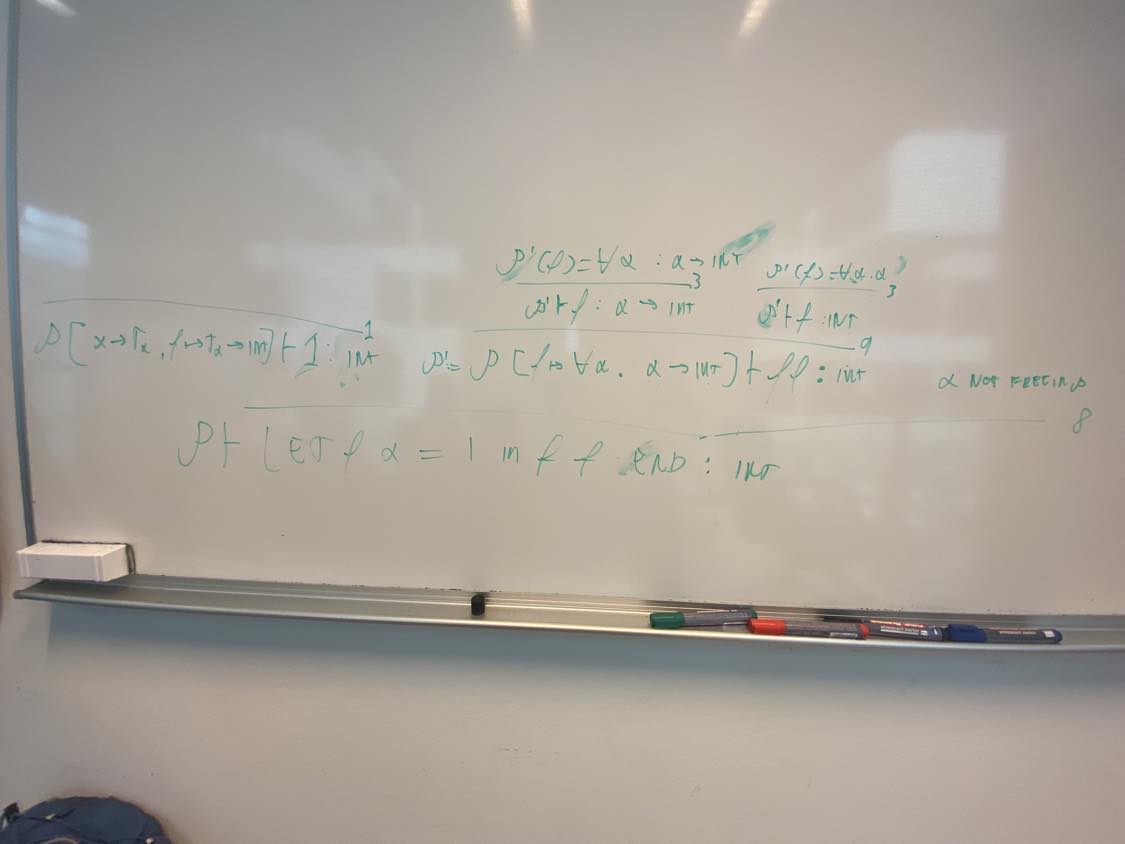 ρ'(f)=∀α : α→INT
3
ρ'(f)=∀α.α
3
ρ'⊢f : α→INT
ρ'⊢f : INT
1
ρ[x→τx, f↦τx→INT]⊢1 : INT
9
ρ'= ρ[f↦∀α. α→INT]⊢ff : INT
α NOT FREE IN ρ
8
ρ⊢LET f x = 1 in f f END : INT